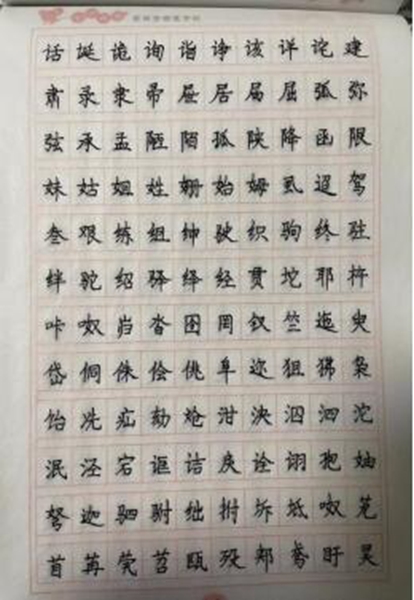 话诞诡询诣诤该详诧建
肃录隶帚屉居届屈弧弥
弦承孟陋陌孤陕降函限
妹姑姐姓姗始姆虱迢驾
叁艰练组绅驶织驹终驻
绊驼绍驿绎经贯坨耶杵
咔呶沓囹罔钗竺迤臾
岱侗侏侩佻阜迩狙狒枭
饴冼疝劾炝泔泱泅泗沱
泯泾宕诓诘戾诠诩孢妯
弩迦驷驸绌拊坼坻呶
苜苒茕苕瓯殁郏鸢盱昊